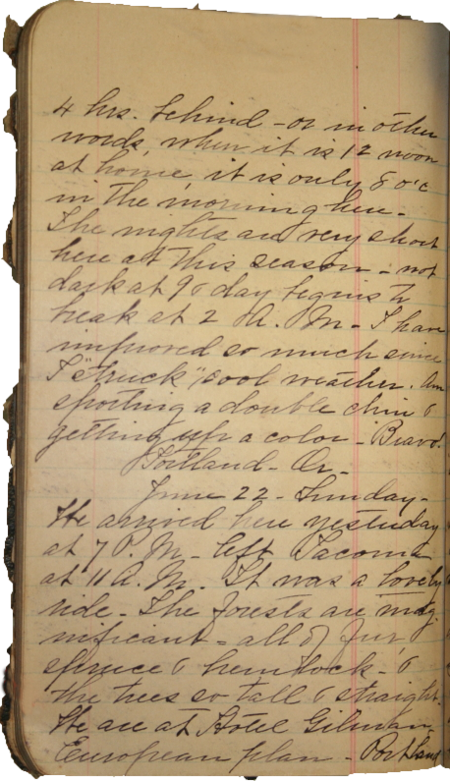 4 hrs. behind - or in other
words, when it is 12 noon
at home, it is only 8 o'c
in the morning here -
The nights are very short
here at this season - not
dark at 9 & day begins to
break at 2 A. M - I have
improved so much since
I "struck" cool weather. Am
sporting a double chin &
getting up a color - Bravo!
Portland - Or -
June 22 - Sunday -
We arrived here yesterday
at 7 P. M - left Tacoma
at 11 A. M. It was a lovely
ride - The forests are mag
nificant - all of fur,
spruce & hemlock - &
the trees so tall & straight.
We are at Hotel Gilman
European plan - Portland